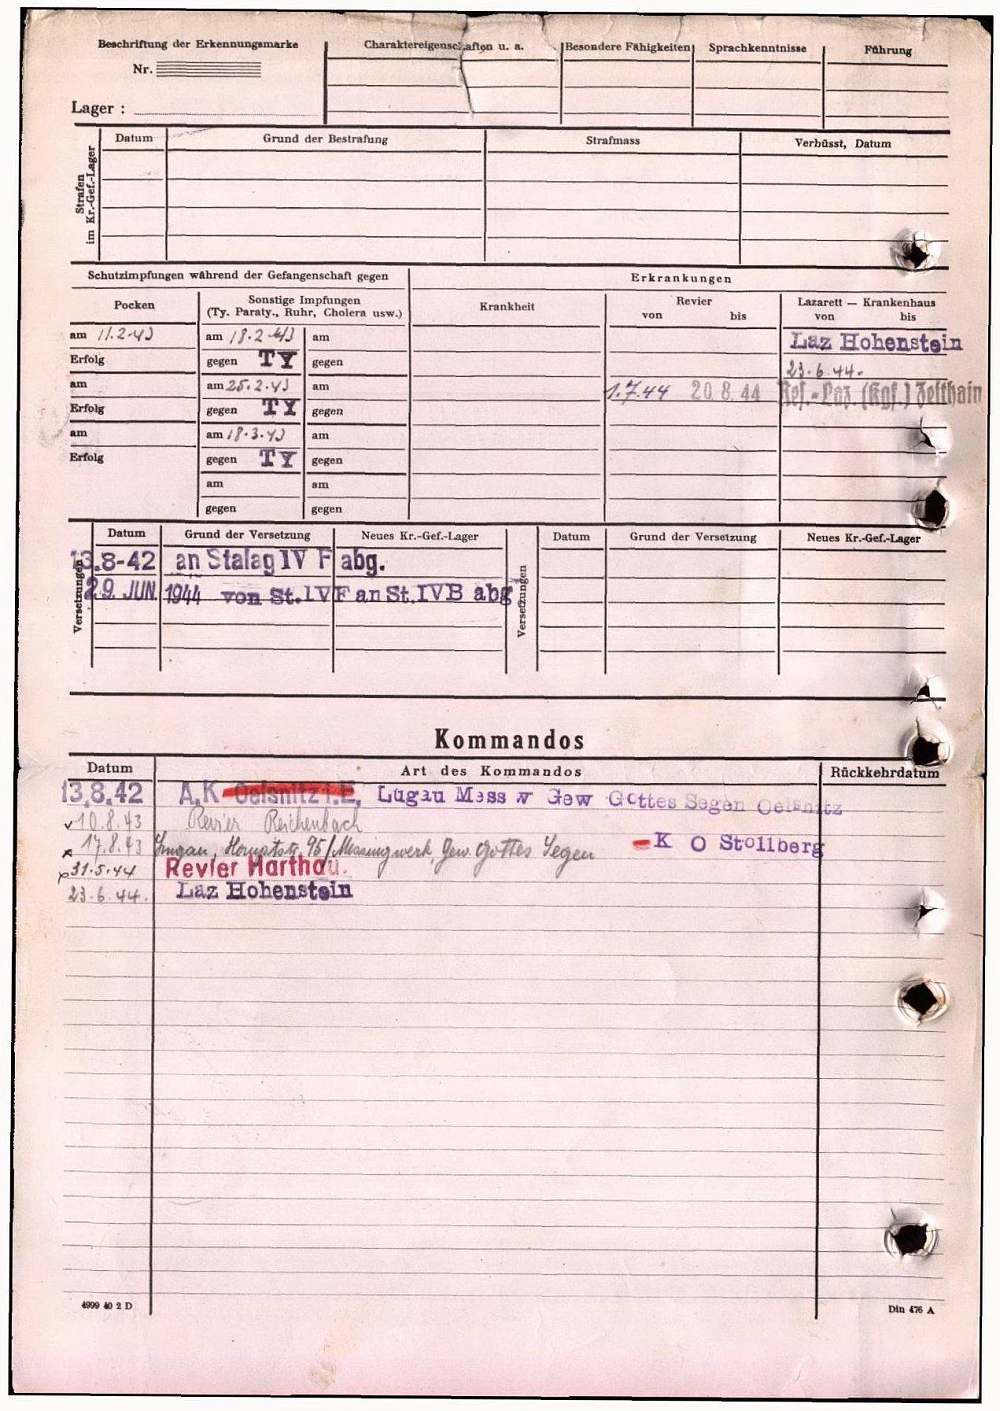 Beschriftung der Erkennungsmarke
Nr.
Lager :
Charaktereigenschaften u. a.
Besondere Fähigkeiten
Sprachkenntnisse
Führung
Strafen
im Kr.-Gef.-Lager
Datum
Grund der Bestrafung
Strafmass
Verbüsst, Datum
Schutzimpfungen während der Gefangenschaft gegen
Erkrankungen
Pocken
Sonstige Impfungen
(Ty. Paraty., Ruhr, Cholera usw.)
Krankheit
Revier
von bis
Lazarett — Krankenhaus
von bis
am 11.2.43 am 18.2.43 am
Laz Hohenstein
Erfolg gegen TY gegen
23.6.44.
am am 25.2.43 am
1.7.44 20.8.44 Ref.-Laz. (Kgf.) Zeithain
Erfolg gegen TY gegen
am am 18.3.43 am
Erfolg gegen TY gegen
am am
gegen gegen
Versetzungen
Datum Grund der Versetzung Neues Kr.-Gef.-Lager
13.8-42 an Stalag IV F abg.
29. JUN. 1944 von St. IV F an St. IVB abg
Versetzungen
Datum Grund der Versetzung Neues Kr.-Gef.-Lager
Kommandos
Datum Art des Kommandos Rückkehrdatum
13.8.42 A.K Oelsnitz i.E. Lugau Mess w Gew Gottes Segen Oelsnitz
10.8.43 Revier Reichenbach
17.8.43 Hauptstr. 95/Messingwerk, Gew. Gottes Segen K O Stollberg
31.5.44 Revier Harthau.
23.6.44. Laz Hohenstein
4999 40 2 D
Din 476 A